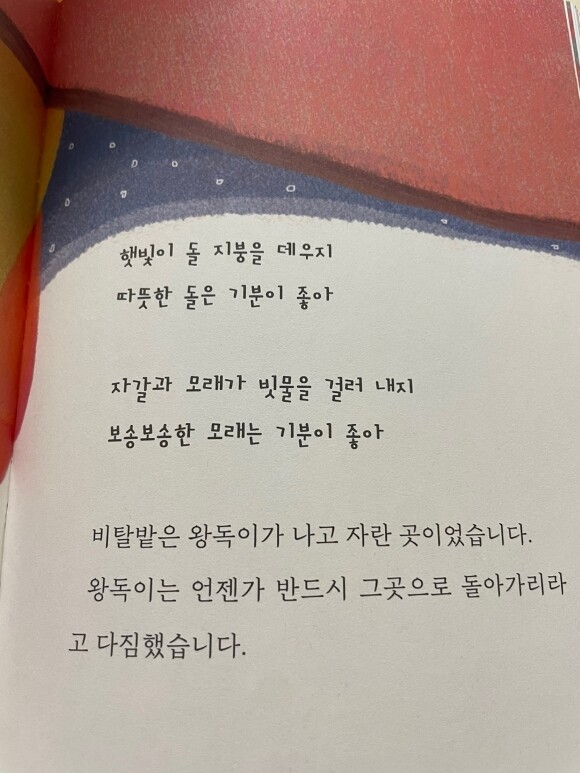 햇빛이 돌 지붕을 데우지
따뜻한 돌은 기분이 좋아
자갈과 모래가 빗물을 걸러 내지
보송보송한 모래는 기분이 좋아
비탈밭은 왕독이가 나고 자란 곳이었습니다.
왕독이는 언젠가 반드시 그곳으로 돌아가리라
고 다짐했습니다.